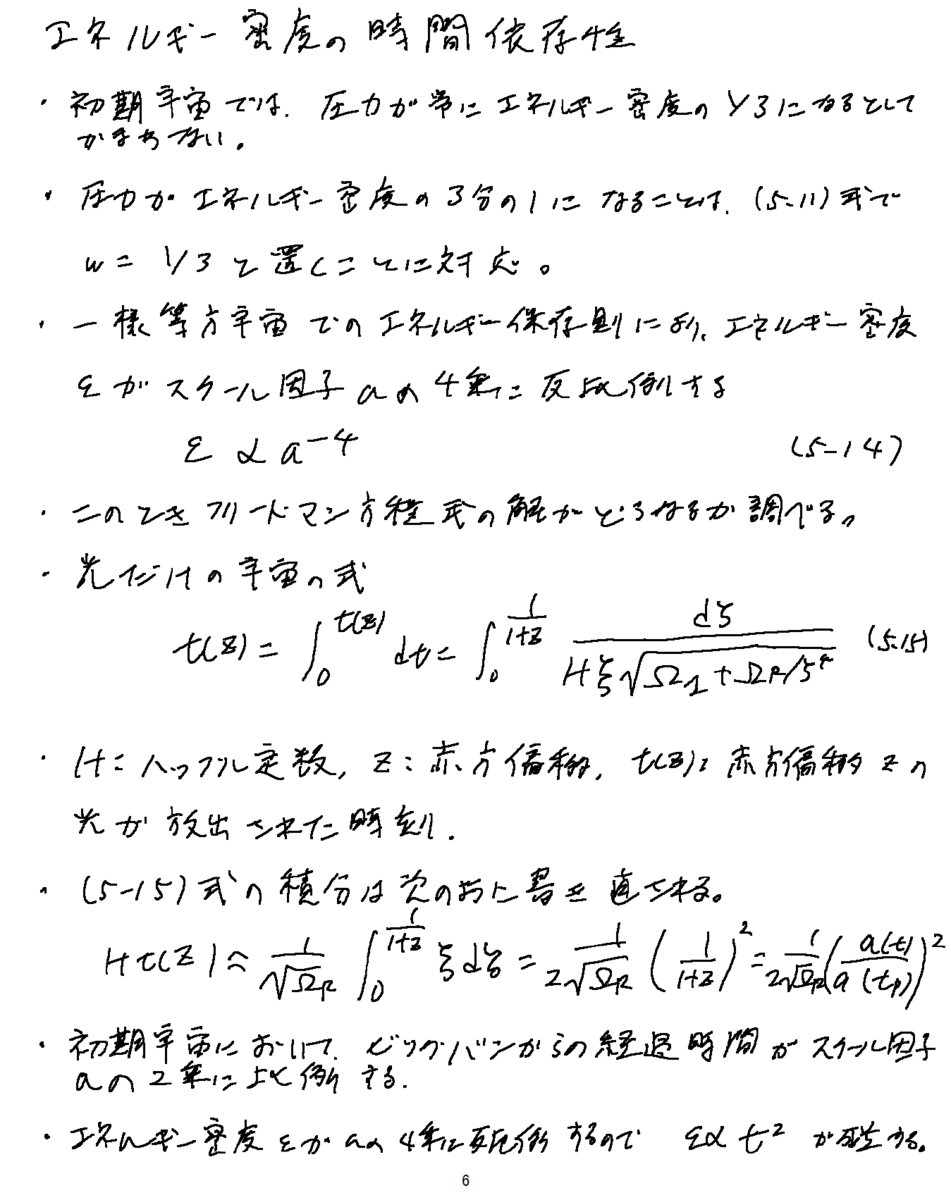 エネルギー密度の時間依存性
・初期宇宙では、圧力が常にエネルギー密度の1/3になるとして
かまわない。
・圧力がエネルギー密度の3分の1になることは、(5-11)式で
w = 1/3と置くことに対応。
・一様等方宇宙でのエネルギー保存則により、エネルギー密度
εがスケール因子aの4乗に反比例する
ε ∝ a⁻⁴ (5-14)
・このときフリードマン方程式の解がどうなるか調べる。
・光だけの宇宙の式
t(z) = ∫₀^{t(z)} dt = ∫₀^{1/(1+z)} dζ / (Hζ√(Ω_Λ + Ω_R/ζ⁴)) (5-15)
・H: ハッブル定数, z: 赤方偏移, t(z): 赤方偏移zの
光が放出された時刻.
・(5-15)式の積分は次のように書き直される。
Ht(z) ≈ 1/√Ω_R ∫₀^{1/(1+z)} ζdζ = 1/(2√Ω_R) (1/(1+z))² = 1/(2√Ω_R) (a(t)/a(t₀))²
・初期宇宙において、ビッグバンからの経過時間がスケール因子
aの2乗に比例する.
・エネルギー密度εがaの4乗に反比例するので ε∝t² が成立する。
6